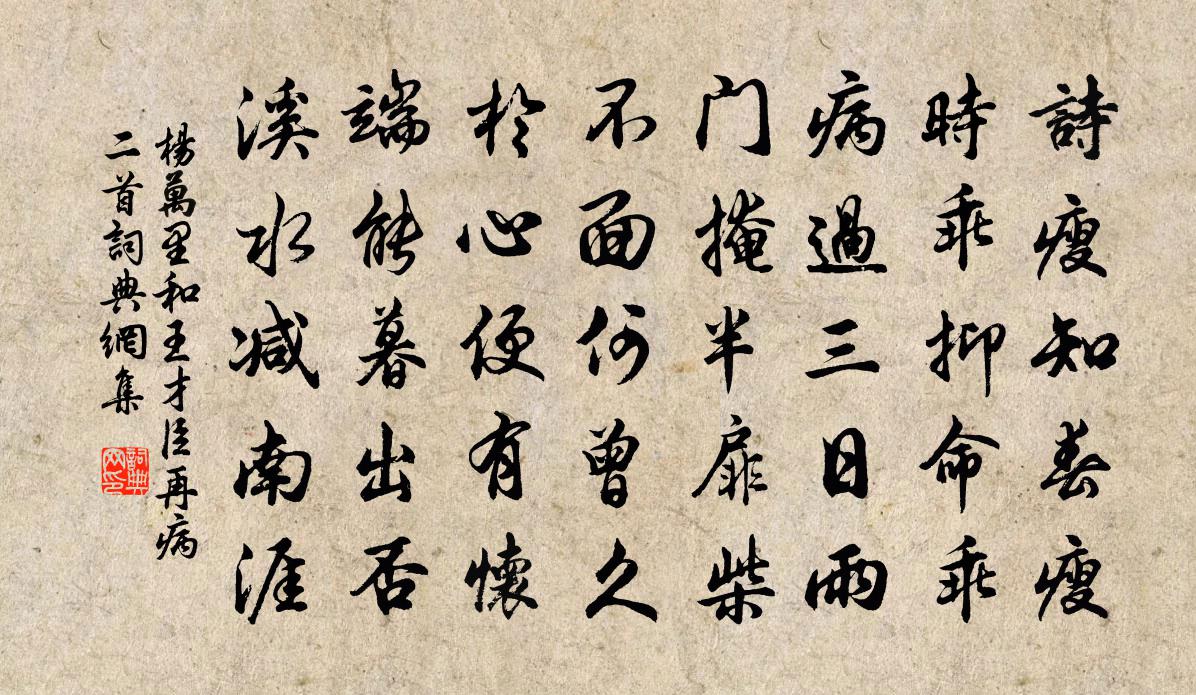 詩瘦知春瘦
時乖抑命乖
病過三日雨
門掩半扉柴
不面何曾久
於心便有懷
端能暮出否
溪水減南涯
楊萬里和王才臣再病
二首詞典網集
詞典
網印